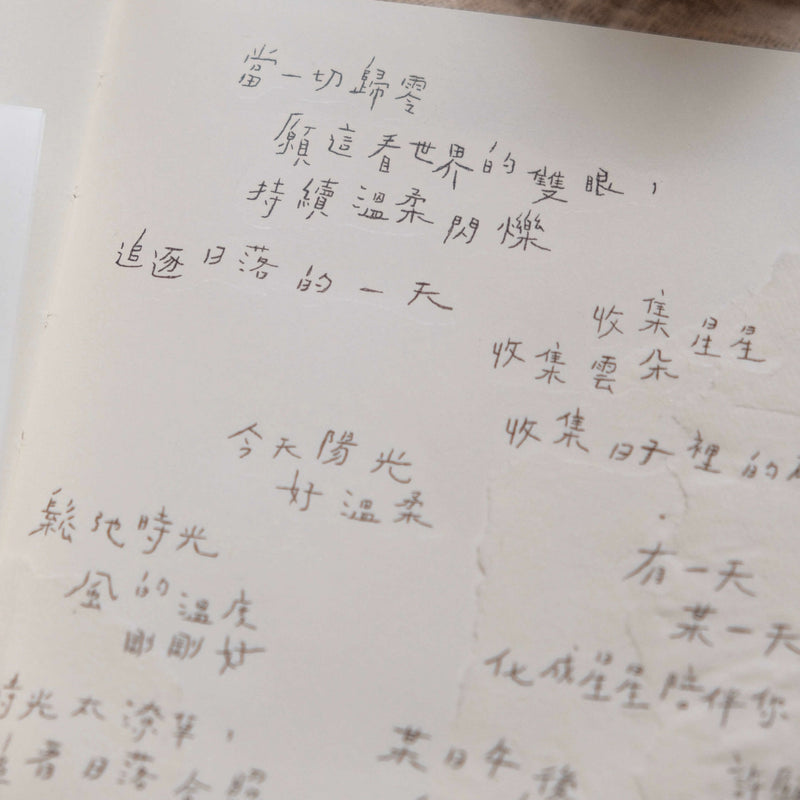 當一切歸零
願這看世界的雙眼，
持續溫柔閃爍
追逐日落的一天
收集星星
收集雲朵
收集日子裡的
今天陽光
好溫柔
鬆弛時光
風的溫度
剛剛好
有一天
某一天
化成星星陪伴你
時光太
著日落
某日午後
許願